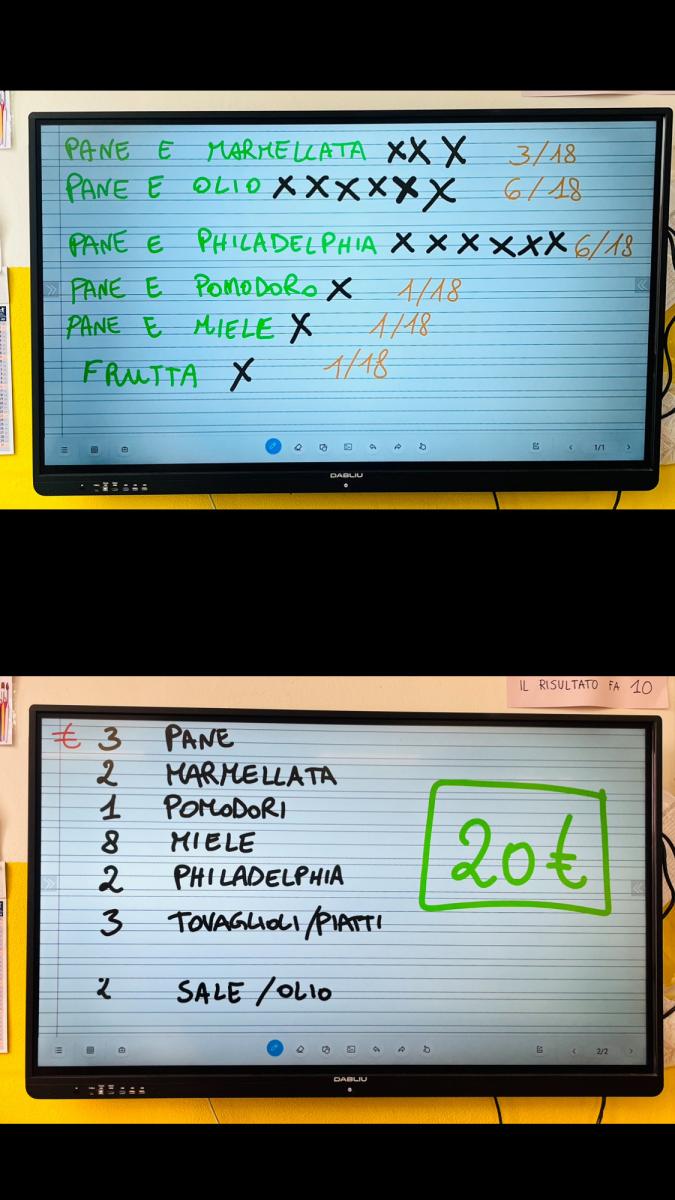 PANE E MARMELLATA XXX 3/18
PANE E OLIO XXXXXX 6/18
PANE E PHILADELPHIA XXXXXX 6/18
PANE E POMODORO X 1/18
PANE E MIELE X 1/18
FRUTTA X 1/18
1/1
DABLIU
IL RISULTATO FA 10
€ 3 PANE
2 MARMELLATA
1 POMODORI
8 MIELE
20€
2 PHILADELPHIA
3 TOVAGLIOLI/PIATTI
2 SALE/OLIO
2/2
DABLIU